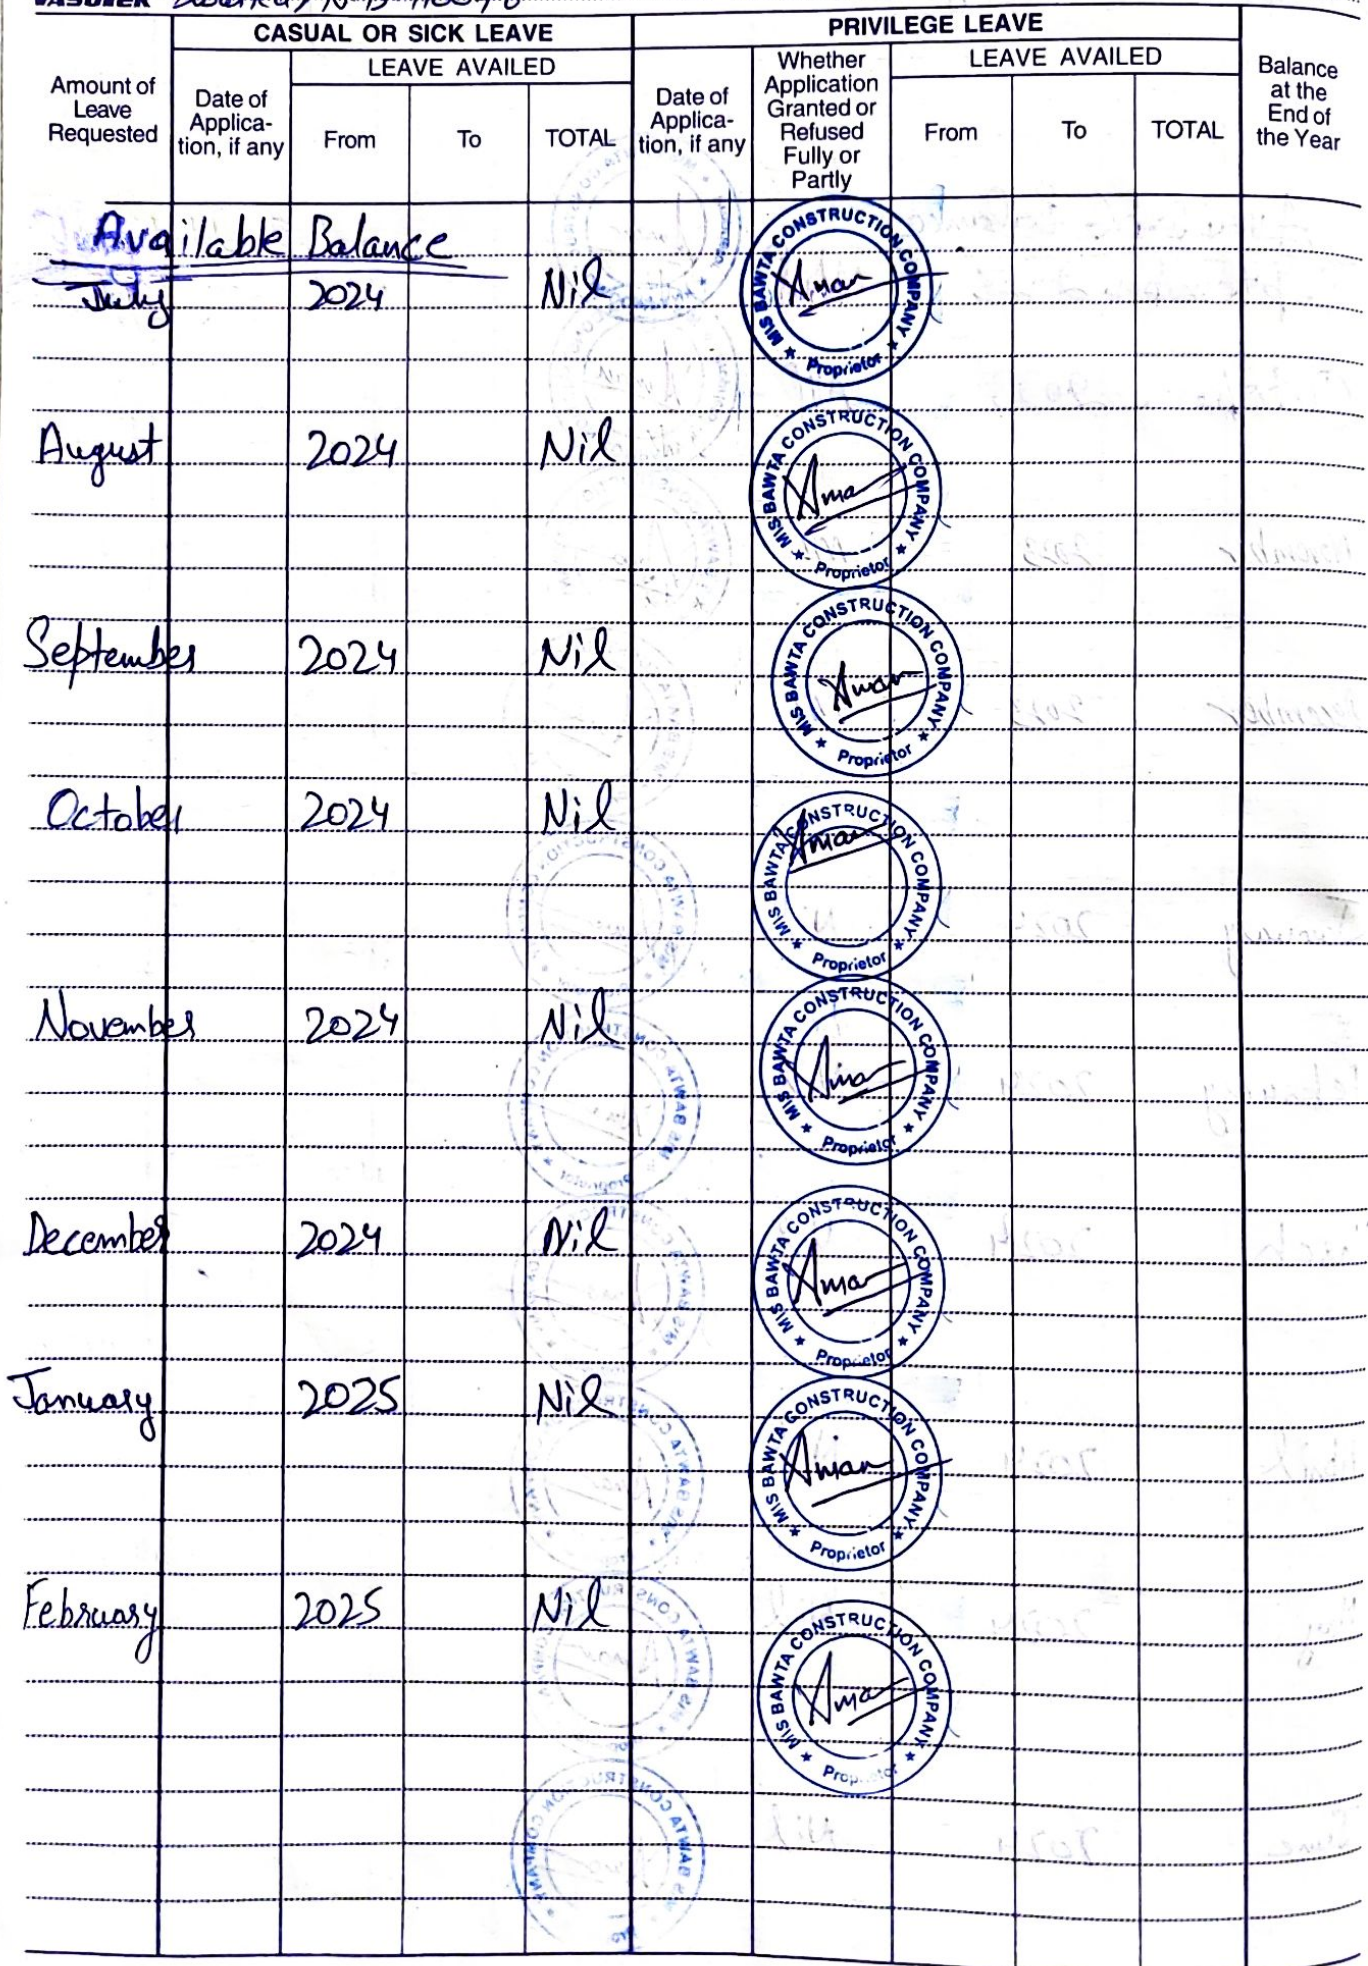 VASUDEK
CASUAL OR SICK LEAVE PRIVILEGE LEAVE
Amount of Leave Requested
Date of Applica-tion, if any
LEAVE AVAILED
From To TOTAL
Date of Applica-tion, if any
Whether Application Granted or Refused Fully or Partly
LEAVE AVAILED
From To TOTAL
Balance at the End of the Year
Available Balance
July 2024 Nil
MIS BAWTA CONSTRUCTION COMPANY ★ Proprietor ★
Aman
August 2024 Nil
MIS BAWTA CONSTRUCTION COMPANY ★ Proprietor ★
Aman
September 2024 Nil
MIS BAWTA CONSTRUCTION COMPANY ★ Proprietor ★
Aman
October 2024 Nil
MIS BAWTA CONSTRUCTION COMPANY ★ Proprietor ★
Aman
November 2024 Nil
MIS BAWTA CONSTRUCTION COMPANY ★ Proprietor ★
Aman
December 2024 Nil
MIS BAWTA CONSTRUCTION COMPANY ★ Proprietor ★
Aman
January 2025 Nil
MIS BAWTA CONSTRUCTION COMPANY ★ Proprietor ★
Aman
February 2025 Nil
MIS BAWTA CONSTRUCTION COMPANY ★ Proprietor ★
Aman